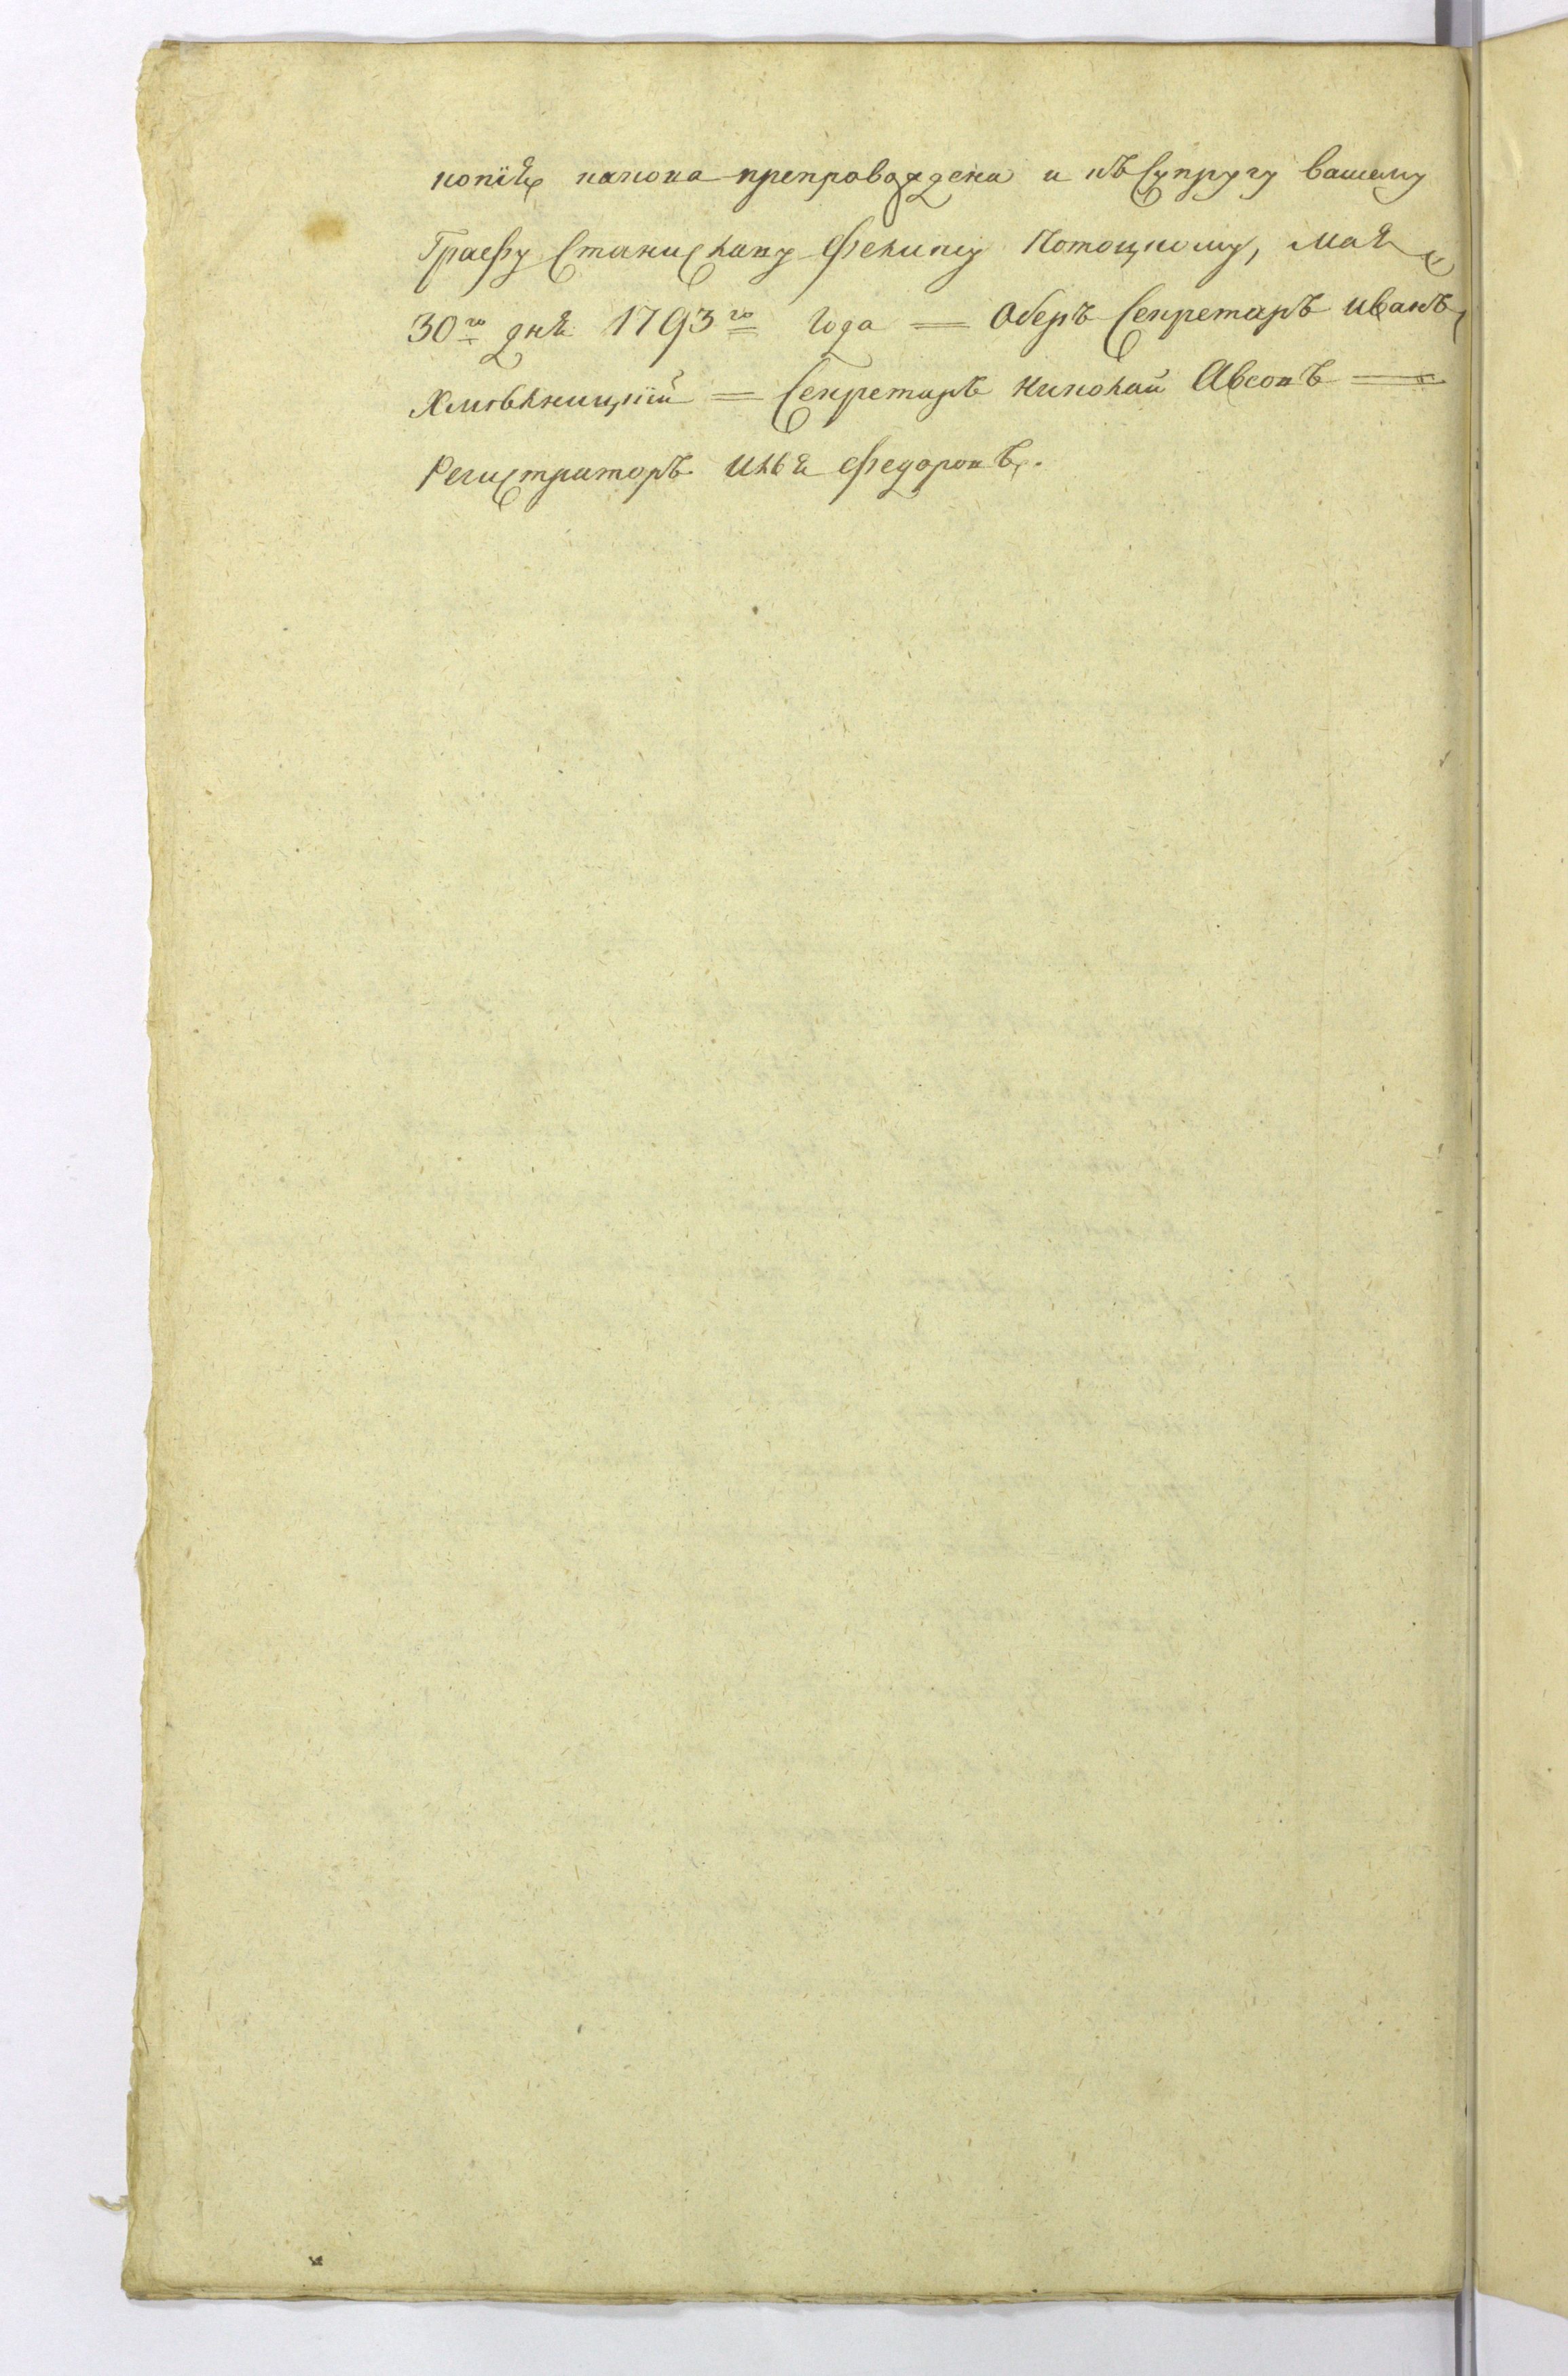 копія какова препровождена и къ Супругу вашему
Графу Станиславу Феликсу Потоцкому, Мая
30го дня 1793го Года = Оберъ Секретарь Иванъ
Хмѣльницкій = Секретарь Николай
Регистраторъ Илья Федоровъ.